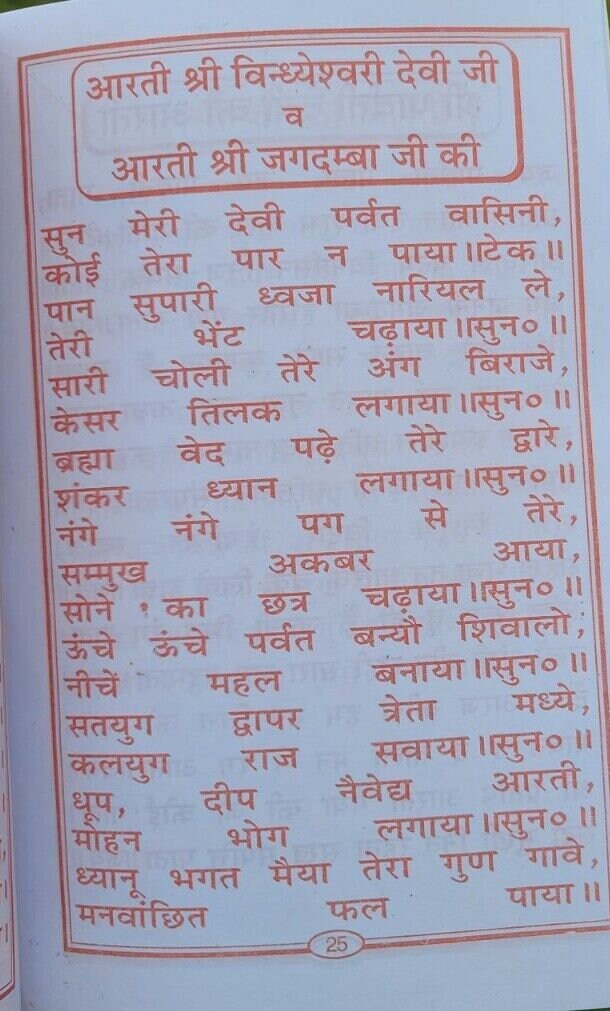 आरती श्री विन्ध्येश्वरी देवी जी
व
आरती श्री जगदम्बा जी की
सुन मेरी देवी पर्वत वासिनी,
कोई तेरा पार न पाया॥टेक॥
पान सुपारी ध्वजा नारियल ले,
तेरी भेंट चढ़ाया॥सुन०॥
सारी चोली तेरे अंग बिराजे,
केसर तिलक लगाया॥सुन०॥
ब्रह्मा वेद पढ़े तेरे द्वारे,
शंकर ध्यान लगाया॥सुन०॥
नंगे नंगे पग से तेरे,
सम्मुख अकबर आया,
सोने का छत्र चढ़ाया॥सुन०॥
ऊंचे ऊंचे पर्वत बन्यौ शिवालो,
नीचे महल बनाया॥सुन०॥
सतयुग द्वापर त्रेता मध्ये,
कलयुग राज सवाया॥सुन०॥
धूप, दीप नैवेद्य आरती,
मोहन भोग लगाया॥सुन०॥
ध्यानू भगत मैया तेरा गुण गावे,
मनवांछित फल पाया॥
25